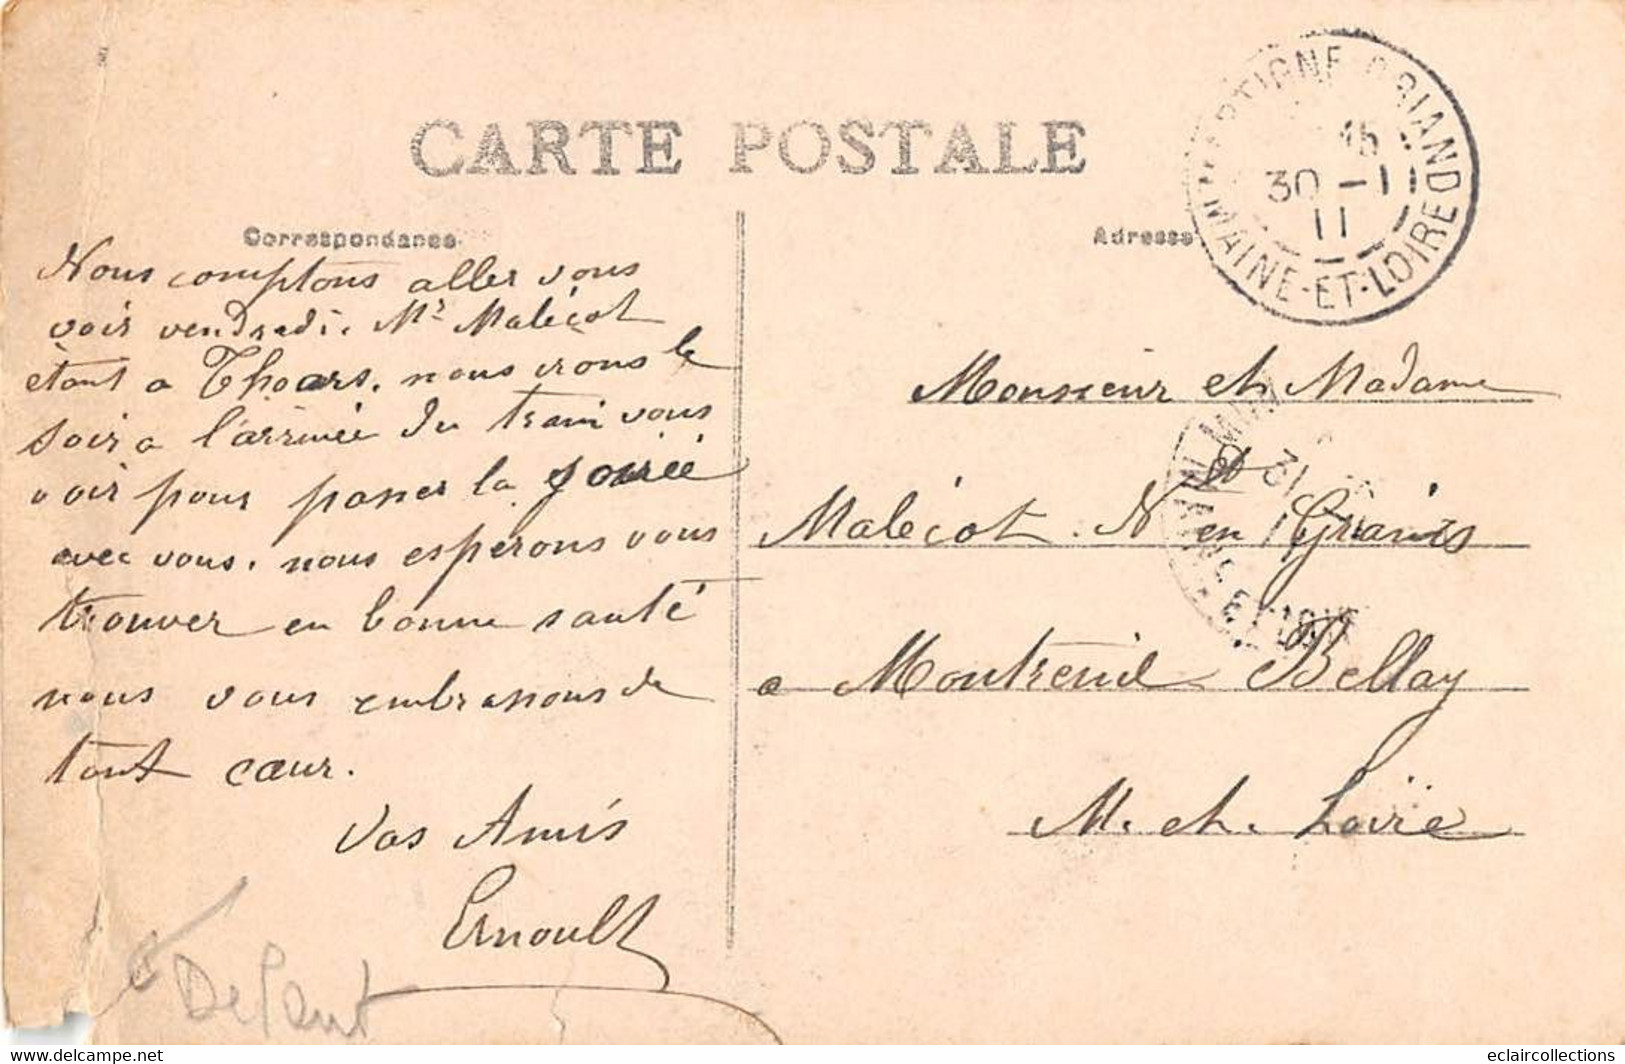 CARTE POSTALE
Correspondance
Adresse
MARTIGNE BRIAND
15
30 - 11
11
MAINE-ET-LOIRE
Nous comptons aller vous
voir vendredi. Mr Malécot
étant a Thouars. nous irons le
soir a l'arrivée du train vous
voir pour passer la soirée
avec vous. nous esperons vous
trouver en bonne santé
nous vous embrassons de
tout cœur.
Vos Amis
Ernoult
Defaut
Monsieur et Madame
Malécot. Nt en Grains
a Montreuil Bellay
M. et. Loire
31
www.delcampe.net
eclaircollections